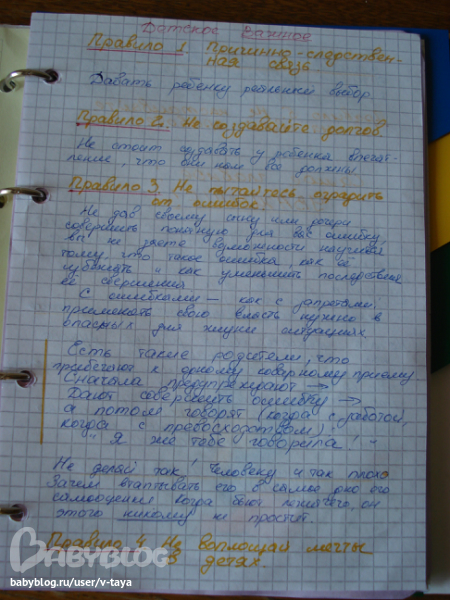 Детское Важное
Правило 1. Причинно-следствен-
ная связь
Давать ребенку реальный выбор
Правило 2. Не создавайте долгов.
Не стоит создавать у ребенка впечат
ление, что они нам все должны
Правило 3. Не пытайтесь оградить
от ошибок!
Не дав своему сыну или дочери
совершить понятную для вас ошибку,
вы не даете возможности научиться
тому, что такое ошибка, как её
избежать и как уменьшить последствия
её свершения
С ошибками — как с запретами:
применять свою власть нужно в
опасных для жизни ситуациях
Есть такие родители, что
прибегают к одному коварному приему
Сначала предупреждают →
Дают совершить ошибку →
а потом говорят (когда с заботой,
когда с превосходством):
"Я же тебе говорила!"
Не делай так! Человеку и так плохо
Зачем втаптывать его в самое дно его
самооценки. Когда бьют лежачего, он
этого никому не простит.
Правило 4. Не воплощай мечты
в детях.
BABYBLOG
babyblog.ru/user/v-taya